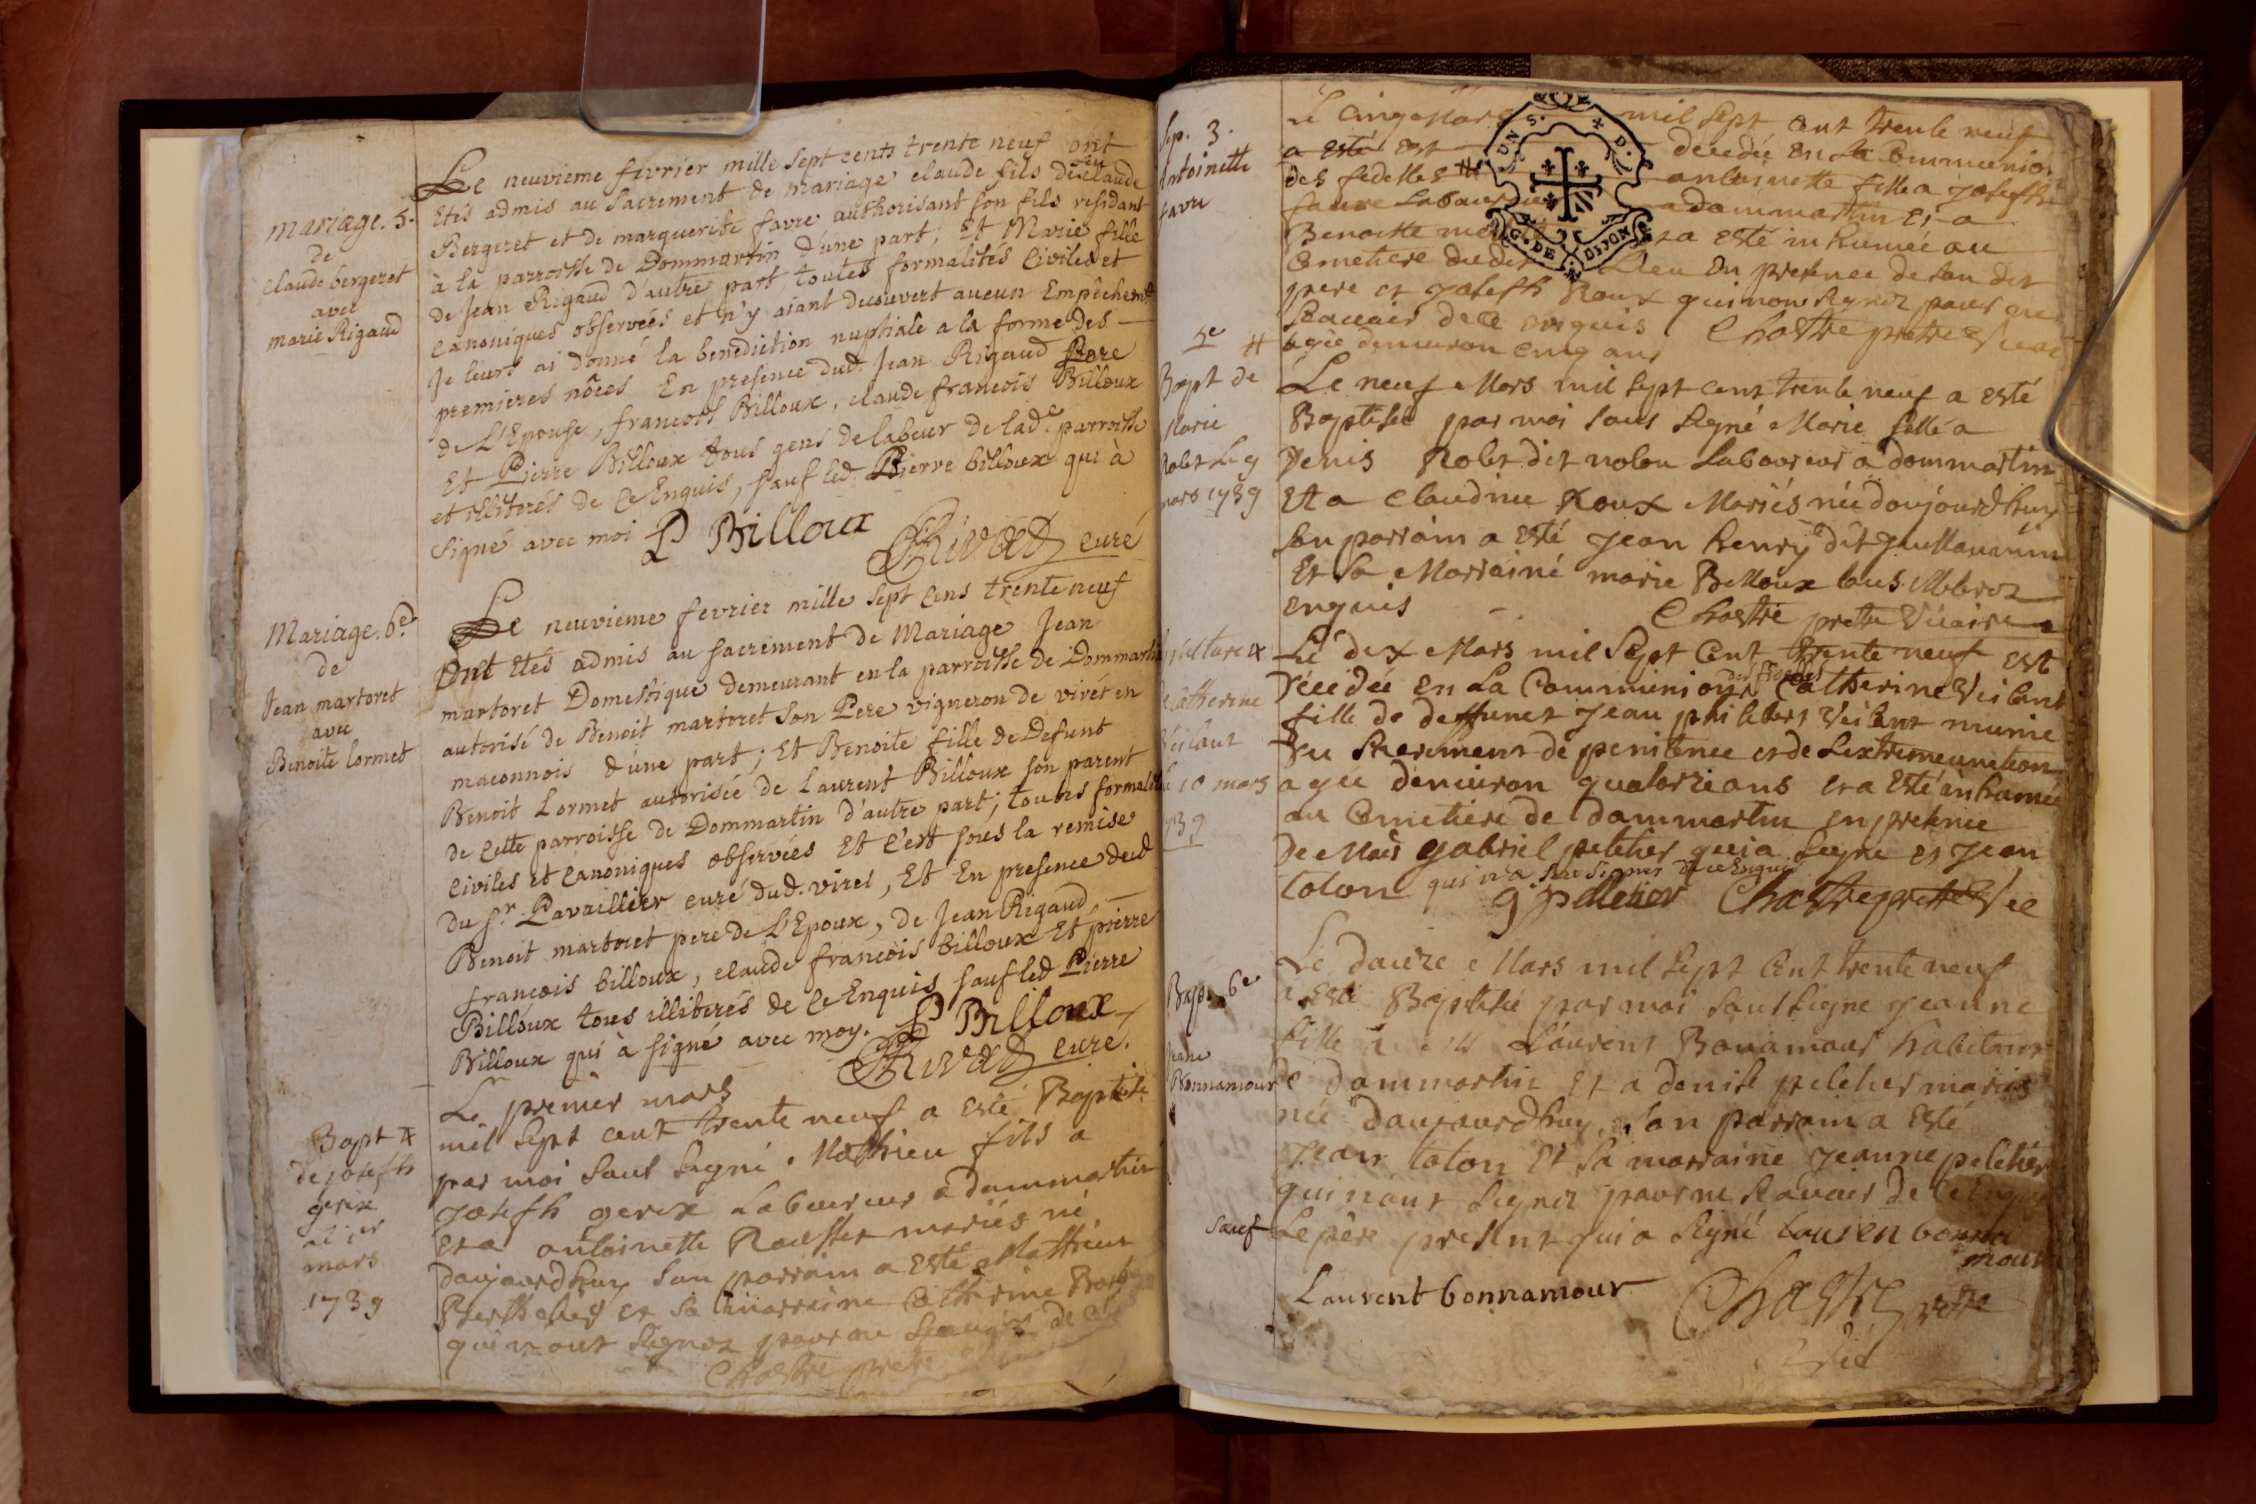 mariage. 5.
de
claude bergeret
avec
marie Rigaud
Le neuvieme fevrier mille sept cents trente neuf ont
etés admis au sacrement de mariage claude fils de feu claude
Bergeret et de marguerite favre authorisant son fils residant
à la parroisse de Dommartin d'une part; et Marie fille
de Jean Rigaud d'autre part toutes formalités Civiles et
canoniques observées et n'y aiant decouvert aucun Empêchemt
Je leurs ai donné la benediction nuptiale a la forme des
premieres nôces En presence dud. Jean Rigaud Pere
de L'Epouse, francois Billoux, claude francois Billoux
Et Pierre Billoux tous gens de labeur de lade parroisse
et illiterés de ce Enquis, sauf led. Pierre billoux qui à
signé avec moi P Billoux
Rivad curé
Mariage. 6e
de
Jean martoret
avec
Benoite lormet
Le neuvieme fevrier mille sept cens trente neuf
Ont etés admis au sacrement de Mariage Jean
martoret Domestique demeurant en la parroisse de Dommartin
autorisé de Benoit martoret son Pere vigneron de viré en
maconnois d'une part; Et Benoite fille de Defunt
Benoit Lormet autorisée de Laurent Billoux son parent
de cette parroisse de Dommartin d'autre part; toutes formalités
civiles et canoniques observées Et c'est sous la remise
du sr. Pavaillier curé dud. viret, Et En presence dud
Benoit martoret pere de L'Epoux, de Jean Rigaud,
françois billoux, claude françois billoux Et pierre
Billoux tous illiterés de ce Enquis sauf led Pierre
Billoux qui à signé avec moy. P Billoux
Rivad curé.
Bapt 4
de joseph
gerix
mars
1739
Le premier mars
mil sept cent trente neuf a esté Baptisé
par moi sous signé. Mathieu fils a
joseph gerix Laboureur a dommartin
et a antoinette Rousset mariés né
daujourdhuy son parrain a esté Matthieu
et sa marraine Catherine
qui n'ont signez pour ne scavoir de ce
Chastre pretre
Sep. 3.
Antoinette
favre
Le cinq Mars mil sept cent trente neuf
a esté est decedée En La Communion
des fidelles # antoinette fille a joseph
faivre Laboureur a dommartin et a
Benoitte et a esté inhumée au
Cemetiere dudit Lieu En presence de son dit
pere et joseph Roux qui n'ont signez pour ne
scavoir de ce enquis Chastre pretre vicaire
# agée denviron cinq ans
5e
Bapt de
Marie
Robet Le 9
mars 1739
Le neuf Mars mil sept cent trente neuf a esté
Baptisée par moi sous signé Marie fille a
Denis Robet dit nolon Laboureur a dommartin
Et a Claudine Roux Mariés née daujourdhuy
son parrain a esté jean henry dit
Et sa Marraine marie Billoux tous illiterez
enquis
Chastre pretre Vicaire
sepulture 4
de catherine
Veilaut
le 10 mars
1739
Le dix Mars mil sept cent trente neuf est
décédée en La Communion des fidelles Catherine Veilaut
fille de deffunct jean philibert Veilaut munie
du sacrement de penitence et de Lextremeunction
agée denviron quatorze ans et a esté inhumée
au Cemetiere de dommartin en presence
De Mais gabriel peletier qui a signé et jean
toton qui n'a sceu signer de ce Enquis
g pelletier Chastre pretre Vic
Bapt. 6e
Jeane
Bonnamour
Le douze Mars mil sept cent trente neuf
a esté Baptisée par moi sous signe jeanne
fille a Laurent Bonamour habitant
de dommartin et a denise peletier mariés
née daujourdhuy, son parrain a esté
jean toton Et sa marraine jeanne peletier
qui n'ont signez pour ne scavoir de ce enquis
sauf Le père present qui a signé laurent bonna
mour
Laurent bonnamour
Chastre pretre
Vic